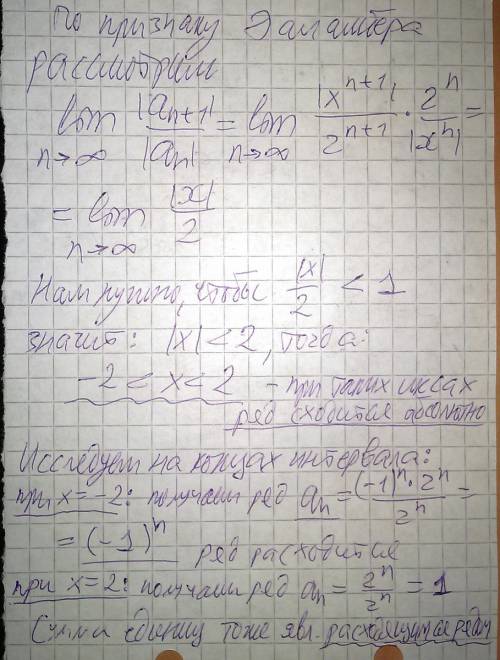 По признаку Даламбера
рассмотрим
lim n→∞ |a_{n+1}|/|a_n| = lim n→∞ |x^{n+1}|/2^{n+1} · 2^n/|x^n| =
= lim n→∞ |x|/2
Нам нужно, чтобы |x|/2 < 1
значит: |x| < 2, тогда:
-2 < x < 2 - при таких иксах
ряд сходится абсолютно
Исследуем на концах интервала:
при x = -2: получаем ряд a_n = (-1)^n · 2^n / 2^n =
= (-1)^n ряд расходится
при x = 2: получаем ряд a_n = 2^n/2^n = 1
Сумма единиц тоже явл. расходящимся рядом